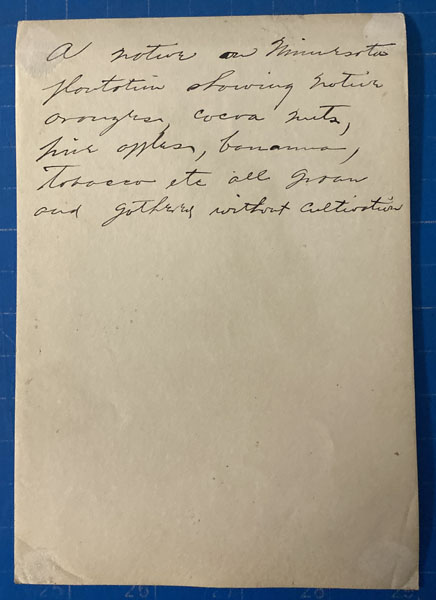 A native on Minnesota
plantation showing native
oranges, cocoa nuts,
pine apples, bananna,
Tobacco etc all grown
and gathered without cultivation
25 26 28 29